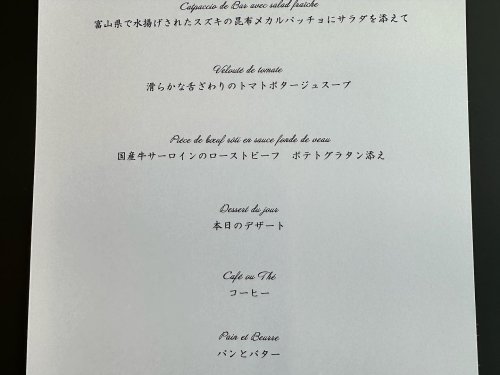 Catpaccio de Bar avec salad fraîche
富山県で水揚げされたスズキの昆布〆カルパッチョにサラダを添えて
Velouté de tomate
滑らかな舌ざわりのトマトポタージュスープ
Piéce de bœuf rôti en sauce fonde de veau
国産牛サーロインのローストビーフ　ポテトグラタン添え
Dessert du jour
本日のデザート
Café ou Thé
コーヒー
Pain et Beurre
パンとバター